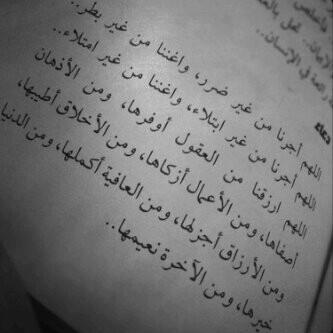 دعاء
اللهم أجرنا من غير ضرر، واغننا من غير بطر..
اللهم أجرنا من غير ابتلاء، واغننا من غير امتلاء..
اللهم ارزقنا من العقول أوفرها، ومن الأذهان
أصفاها، ومن الأعمال أزكاها، ومن الأخلاق أطيبها،
ومن الأرزاق أجزلها، ومن العافية أكملها، ومن الدنيا
خيرها، ومن الآخرة نعيمها..